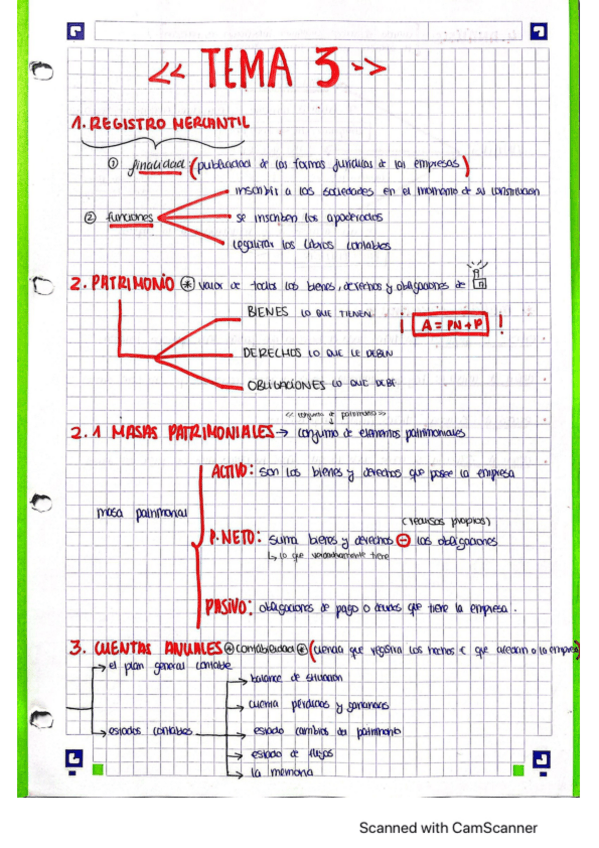 << TEMA 3 >>
1. REGISTRO MERCANTIL
① finalidad (publicidad de las formas jurídicas de las empresas)
② funciones
inscribir a las sociedades en el momento de su constitución
se inscriben los apoderados
legalizar los libros contables
2. PATRIMONIO * valor de todos los bienes, derechos y obligaciones de
BIENES LO QUE TIENEN
¡ A = PN + P !
DERECHOS LO QUE LE DEBEN
OBLIGACIONES LO QUE DEBE
<< conjunto de patrimonio >>
2.1 MASAS PATRIMONIALES → conjunto de elementos patrimoniales
masa patrimonial
ACTIVO: son los bienes y derechos que posee la empresa
(recursos propios)
P. NETO: suma bienes y derechos - las obligaciones
↳ lo que verdaderamente tiene
PASIVO: obligaciones de pago o deudas que tiene la empresa.
3. CUENTAS ANUALES * contabilidad * (ciencia que registra los hechos que afectan a la empresa)
→ el plan general contable
→ estados contables
→ balance de situación
→ cuenta pérdidas y ganancias
→ estado cambios de patrimonio
→ estado de flujos
→ la memoria
Scanned with CamScanner